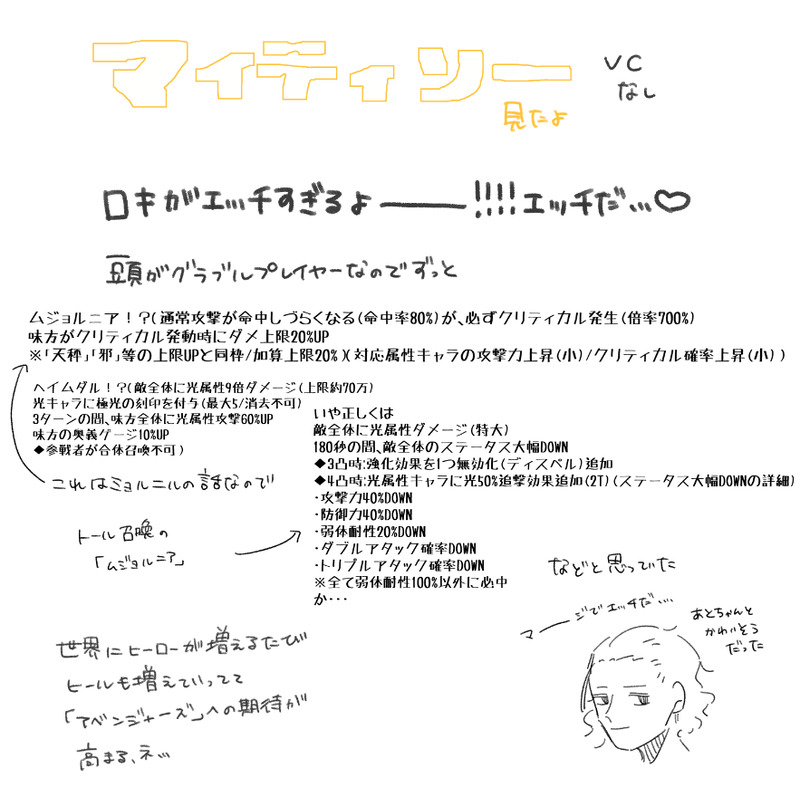 マイティソー
見たよ
VC
なし
ロキがエッチすぎるよ――!!!!エッチだ…♡
頭がグラブルプレイヤーなのでずっと
ムジョルニア!?(通常攻撃が命中しづらくなる(命中率80%)が、必ずクリティカル発生(倍率700%)
味方がクリティカル発動時にダメ上限20%UP
※「天秤」「邪」等の上限UPと同枠/加算上限20% )(対応属性キャラの攻撃力上昇(小)/クリティカル確率上昇(小))
ヘイムダル!?(敵全体に光属性9倍ダメージ(上限約70万)
光キャラに極光の刻印を付与(最大5/消去不可)
3ターンの間、味方全体に光属性攻撃60%UP
味方の奥義ゲージ10%UP
◆参戦者が合体召喚不可)
これはミョルニルの話なので
トール召喚の
「ムジョルニア」
いや正しくは
敵全体に光属性ダメージ(特大)
180秒の間、敵全体のステータス大幅DOWN
◆3凸時:強化効果を1つ無効化(ディスペル)追加
◆4凸時:光属性キャラに光50%追撃効果追加(2T)(ステータス大幅DOWNの詳細)
・攻撃力40%DOWN
・防御力40%DOWN
・弱体耐性20%DOWN
・ダブルアタック確率DOWN
・トリプルアタック確率DOWN
※全て弱体耐性100%以外に必中
か・・・
などと思っていた
マ――ジでエッチだ…
あとちゃんと
かわいそう
だった
世界にヒーローが増えるたび
ヒールも増えていってて
「アベンジャーズ」への期待が
高まる、ネ…